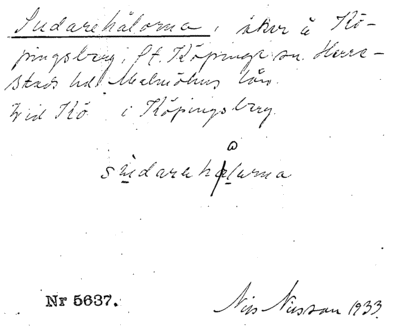 Sudarehålorna, åker å Kö-
pingsberg, St. Köpinge sn. Herr-
stads hd. Malmöhus län.
Vid Kö i Köpingsberg.
å
sudarehålarna
Nr 5637.
Nils Nilsson 1933.